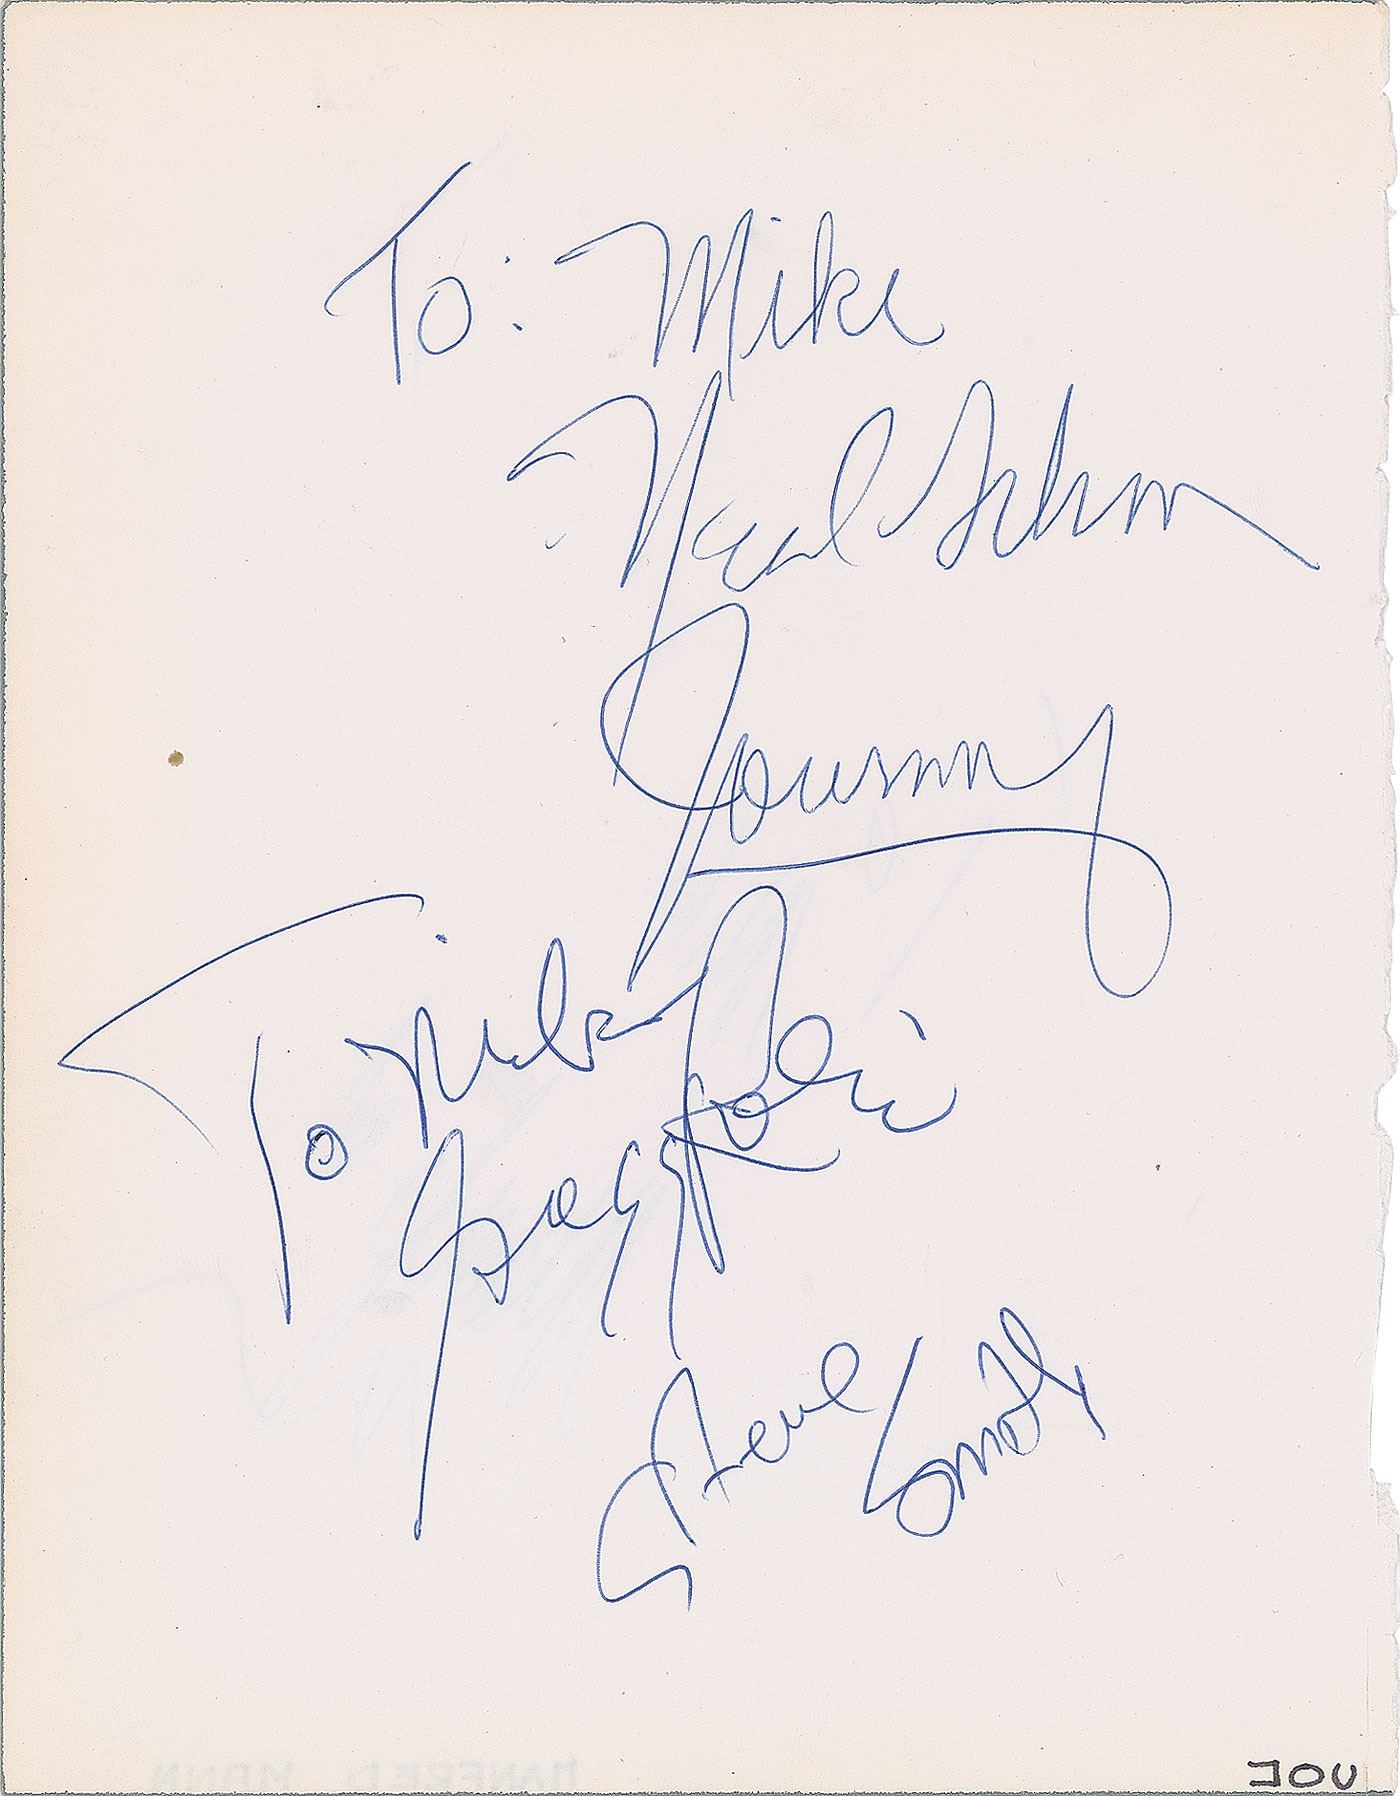 To: Mike
Neal Schon
Journey
To Mike
Gregg Rolie
Steve Smith
JOU
MANFRED MANN